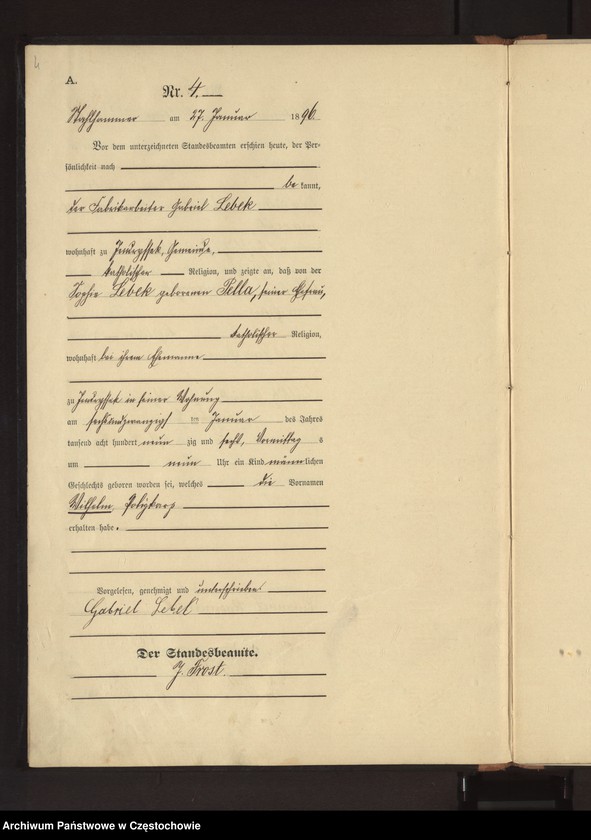 4
A.
Nr. 4.
Stahlhammer am 27. Januar 1896.
Vor dem unterzeichneten Standesbeamten erschien heute, der Per-
sönlichkeit nach
be kannt,
der Fabrikarbeiter Gabriel Lebek
wohnhaft zu Gemeinde,
katholischer Religion, und zeigte an, daß von der
Sophie Lebek geborenen Pella, seiner Ehefrau,
katholischer Religion,
wohnhaft bei ihrem Ehemanne
zu in seiner Wohnung
am sechsundzwanzigsten Januar des Jahres
tausend acht hundert neun zig und sechs, Vormittag s
um neun Uhr ein Kind männlichen
Geschlechts geboren worden sei, welches die Vornamen
Wilhelm Polykarp
erhalten habe.
Vorgelesen, genehmigt und unterschrieben
Gabriel Lebek
Der Standesbeamte.
J. Frost.
Archiwum Państwowe w Częstochowie